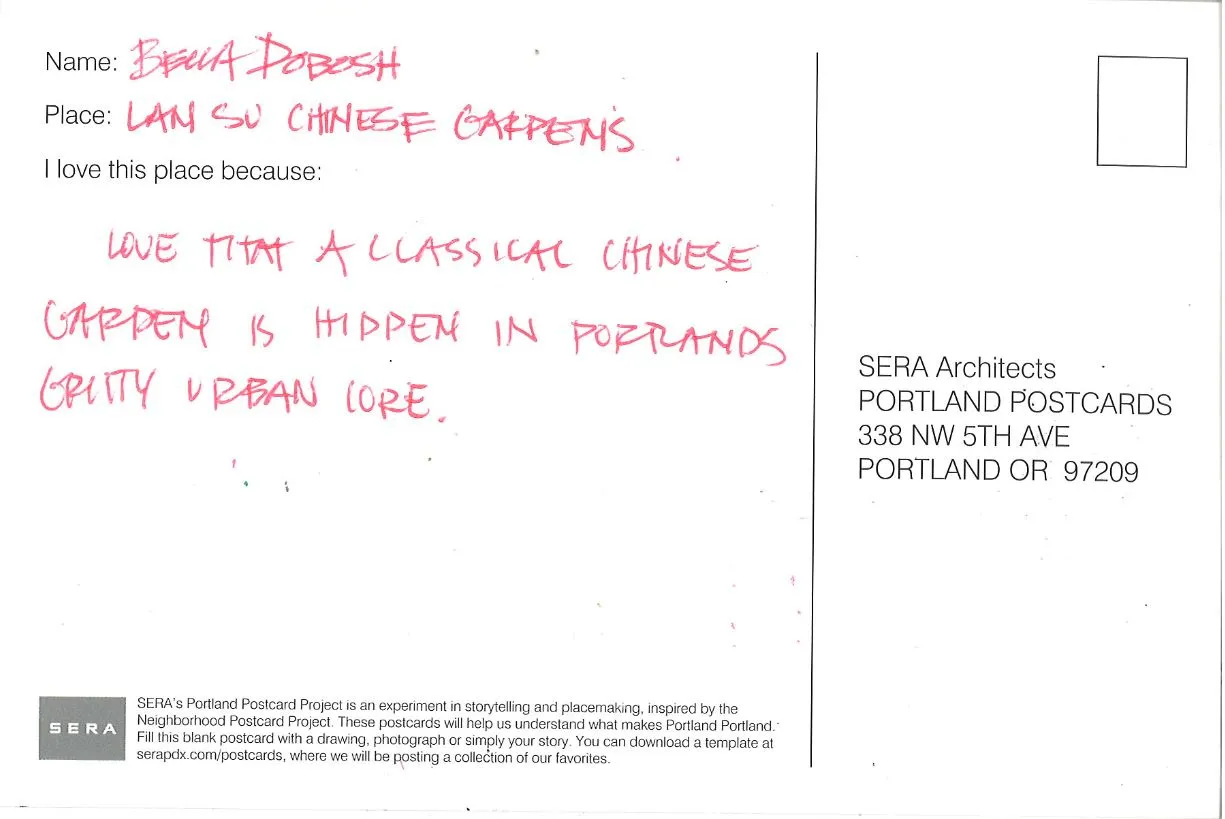 Name: BELLA DOBOSH
Place: LAN SU CHINESE GARDENS
I love this place because:
LOVE THAT A CLASSICAL CHINESE
GARDEN IS HIDDEN IN PORTLANDS
GRITTY URBAN CORE.
SERA Architects
PORTLAND POSTCARDS
338 NW 5TH AVE
PORTLAND OR 97209
SERA
SERA's Portland Postcard Project is an experiment in storytelling and placemaking, inspired by the
Neighborhood Postcard Project. These postcards will help us understand what makes Portland Portland.
Fill this blank postcard with a drawing, photograph or simply your story. You can download a template at
serapdx.com/postcards, where we will be posting a collection of our favorites.